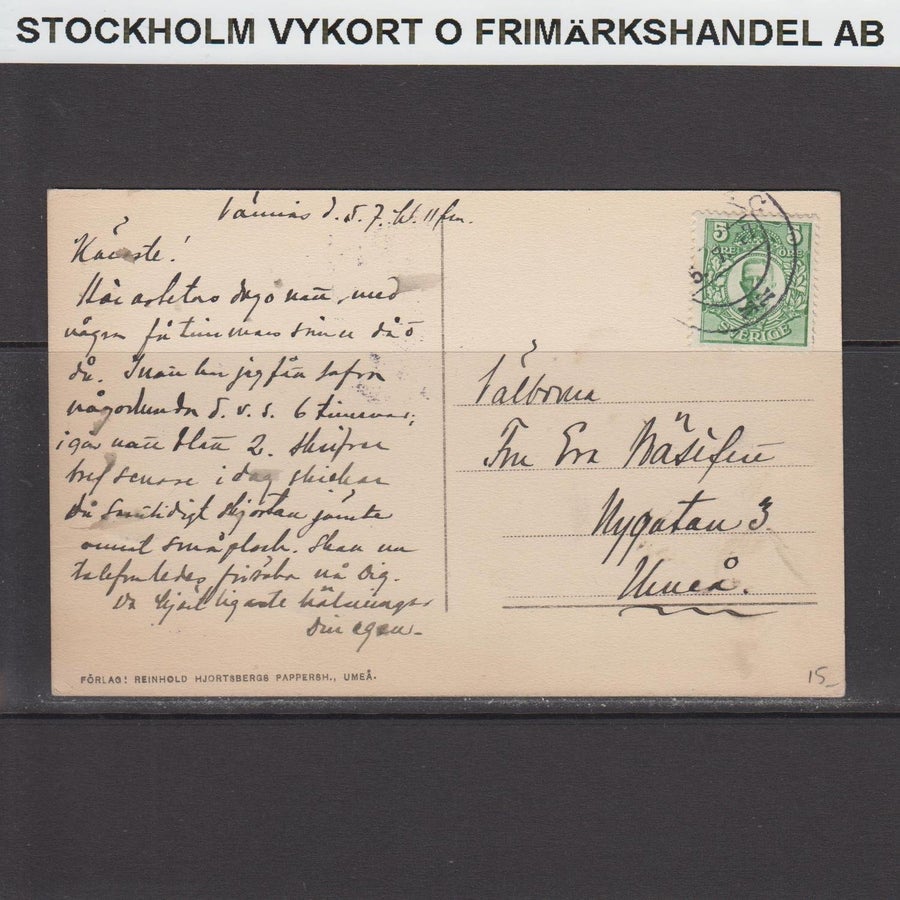 STOCKHOLM VYKORT O FRIMÄRKSHANDEL AB
Vännäs d. 5.7. kl. 11 fm.
Käraste!
Här arbetas dag o natt, med
några få timmars sömn då o
då. I natt har jag fått sofva
någorlunda d. v. s. 6 timmar,
igår natt blott 2. Skrifver
bref senare i dag skickar
då samtidigt skjortan jämte
annat småplock. Skall nu
telefonledes försöka nå Dig.
De hjärtligaste hälsningar
Din egen-
5 5
ÖRE ÖRE
SVERIGE
Välborna
Fru Eva
Nygatan 3
Umeå.
FÖRLAG: REINHOLD HJORTSBERGS PAPPERSH., UMEÅ.
15-